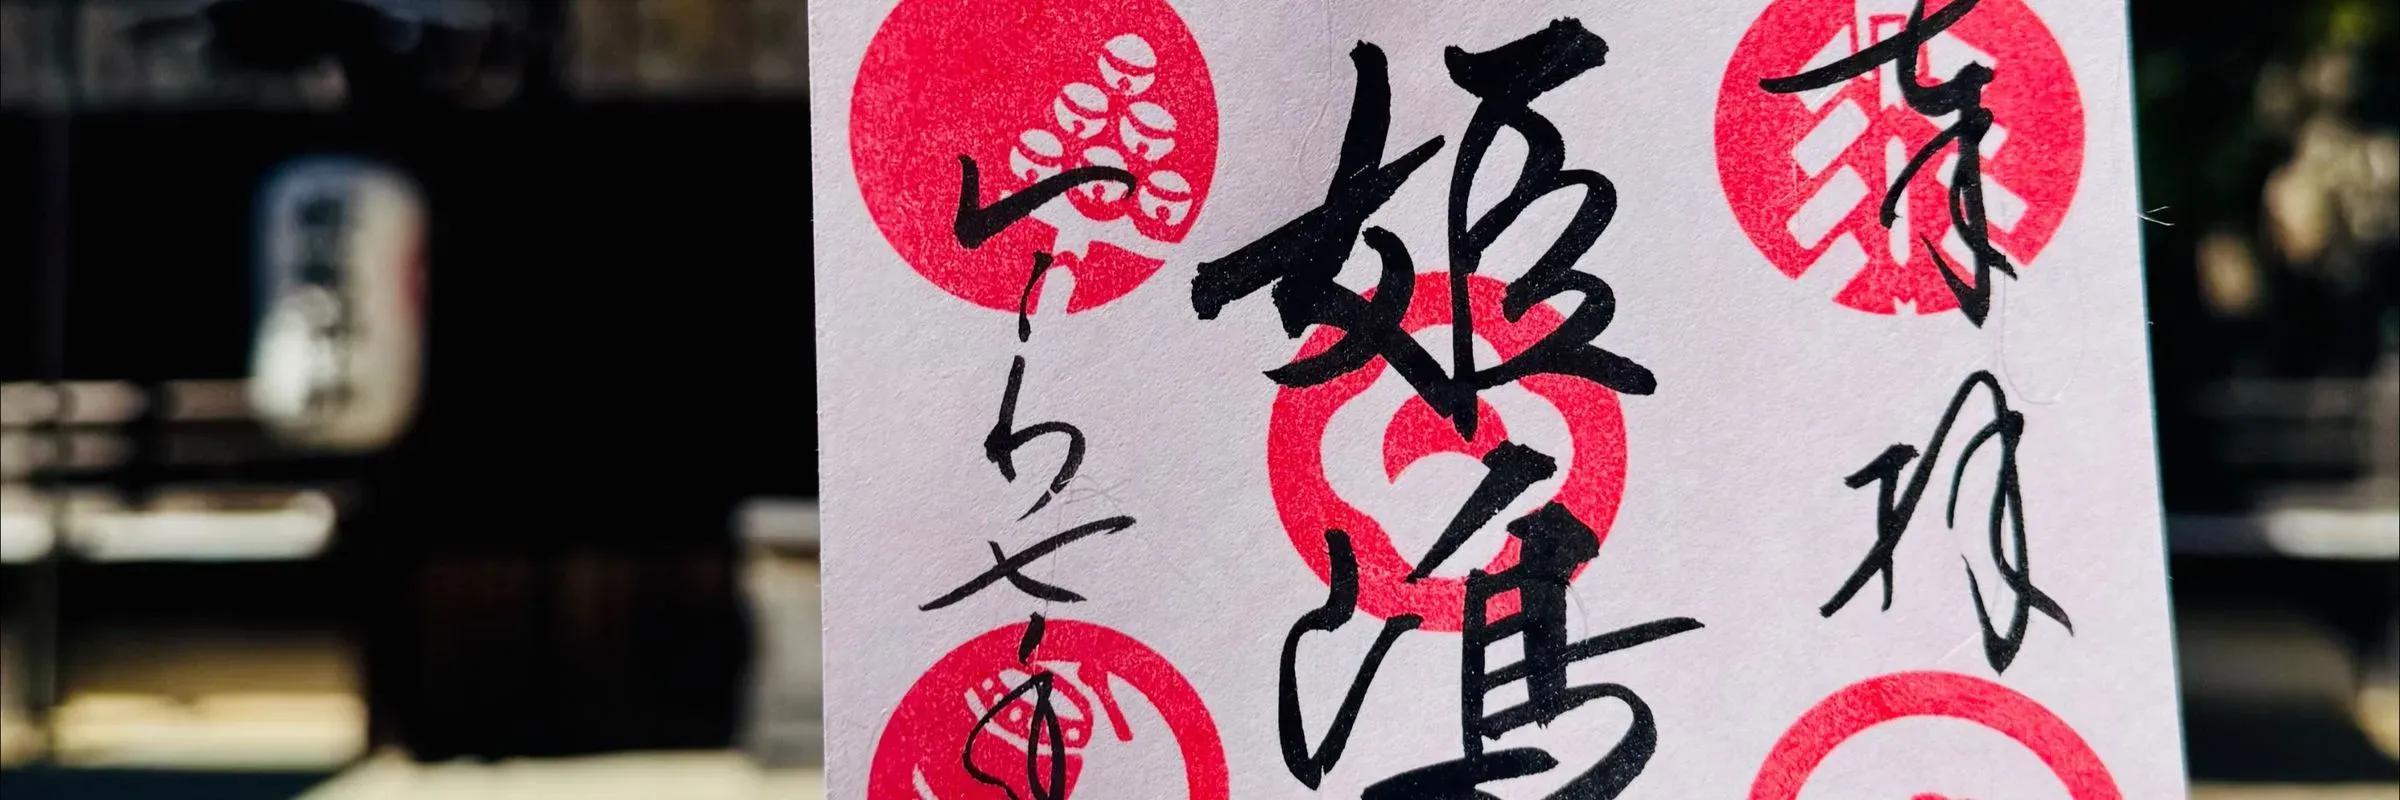 奉拝
姫嶋
令和七年